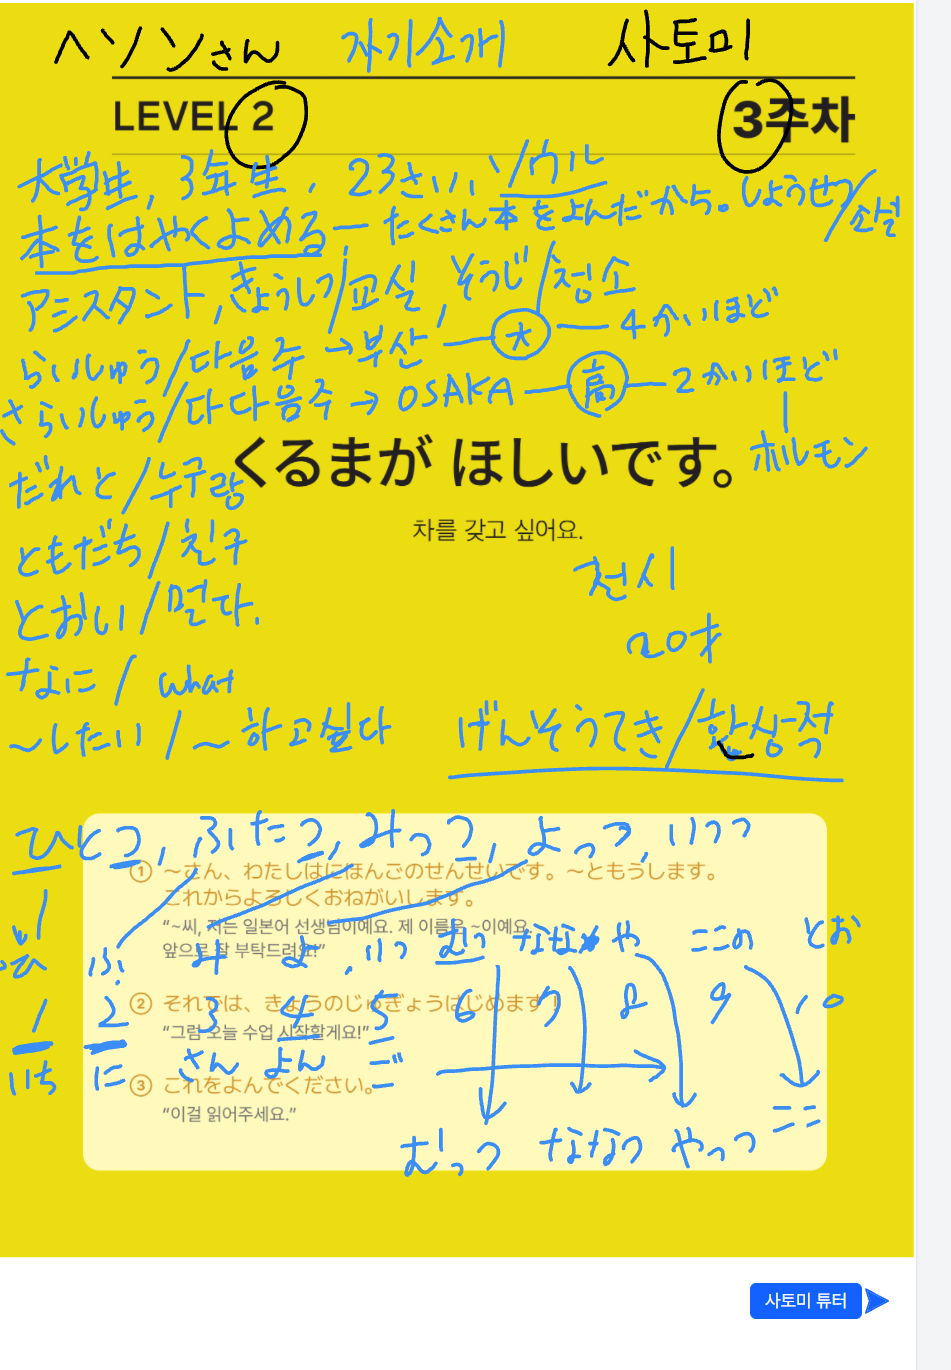 ヘソンさん 자기소개 사토미
LEVEL 2 3주차
大学生, 3年生, 23さい, ソウル
本をはやくよめる ー たくさん本をよんだから。しょうせつ/소설
アシスタント, きょうしつ/교실, そうじ/청소
らいしゅう/다음주 → 부산 — 大 — 4かいほど
さらいしゅう/다다음주 → OSAKA — 高 — 2かいほど
くるまが ほしいです。
ホルモン
だれと/누구랑
차를 갖고 싶어요.
ともだち/친구
천시
とおい/멀다.
20才
なに / what
~したい / ~하고싶다
げんそうてき/환상적
ひとつ, ふたつ, みっつ, よっつ, いつつ
① ~さん、わたしはにほんごのせんせいです。~ともうします。
これからよろしくおねがいします。
“~씨, 저는 일본어 선생님이예요. 제 이름은 ~이예요.
앞으로 잘 부탁드려요!”
ひ ふ み よ いつ むっ なな や ここの とお
② それでは、きょうのじゅぎょうはじめます！
1 2 3 4 5 6 7 8 9 10
“그럼 오늘 수업 시작할게요!”
いち に さん よん ご
③ これをよんでください。
“이걸 읽어주세요.”
むっつ ななつ やっつ ここ
사토미 튜터